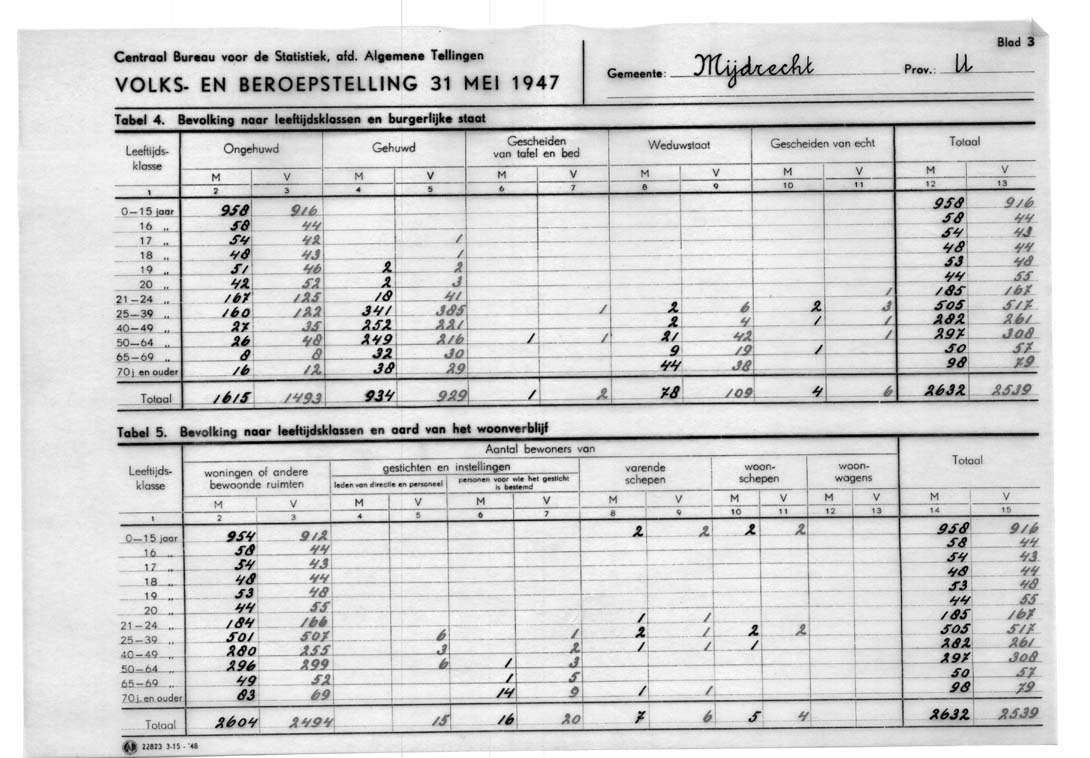 Blad 3
Centraal Bureau voor de Statistiek, afd. Algemene Tellingen
VOLKS- EN BEROEPSTELLING 31 MEI 1947
Gemeente: Mijdrecht Prov.: U
Tabel 4. Bevolking naar leeftijdsklassen en burgerlijke staat
Leeftijds-klasse Ongehuwd Gehuwd Gescheiden van tafel en bed Weduwstaat Gescheiden van echt Totaal
M V M V M V M V M V M V
1 2 3 4 5 6 7 8 9 10 11 12 13
0—15 jaar 958 916 958 916
16 „ 58 44 58 44
17 „ 54 42 1 54 43
18 „ 48 43 1 48 44
19 „ 51 46 2 2 53 48
20 „ 42 52 2 3 44 55
21—24 „ 167 125 18 41 1 185 167
25—39 „ 160 122 341 385 1 2 6 2 3 505 517
40—49 „ 27 35 252 221 2 4 1 1 282 261
50—64 „ 26 48 249 216 1 1 21 42 1 297 308
65—69 „ 8 8 32 30 9 19 1 50 57
70 j. en ouder 16 12 38 29 44 38 98 79
Totaal 1615 1493 934 929 1 2 78 109 4 6 2632 2539
Tabel 5. Bevolking naar leeftijdsklassen en aard van het woonverblijf
Aantal bewoners van
Leeftijds-klasse woningen of andere bewoonde ruimten gestichten en instellingen varende schepen woon-schepen woon-wagens Totaal
leden van directie en personeel personen voor wie het gesticht is bestemd
M V M V M V M V M V M V M V
1 2 3 4 5 6 7 8 9 10 11 12 13 14 15
0—15 jaar 954 912 2 2 2 2 958 916
16 „ 58 44 58 44
17 „ 54 43 54 43
18 „ 48 44 48 44
19 „ 53 48 53 48
20 „ 44 55 44 55
21—24 „ 184 166 1 1 185 167
25—39 „ 501 507 6 1 2 1 2 2 505 517
40—49 „ 280 255 3 2 1 1 1 282 261
50—64 „ 296 299 6 1 3 297 308
65—69 „ 49 52 1 5 50 57
70 j. en ouder 83 69 14 9 1 1 98 79
Totaal 2604 2494 15 16 20 7 6 5 4 2632 2539
22823 3-15 - '48